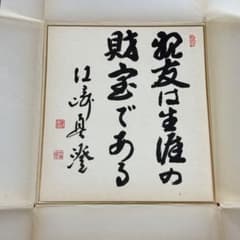 親友は生涯の
財宝である
江崎真澄